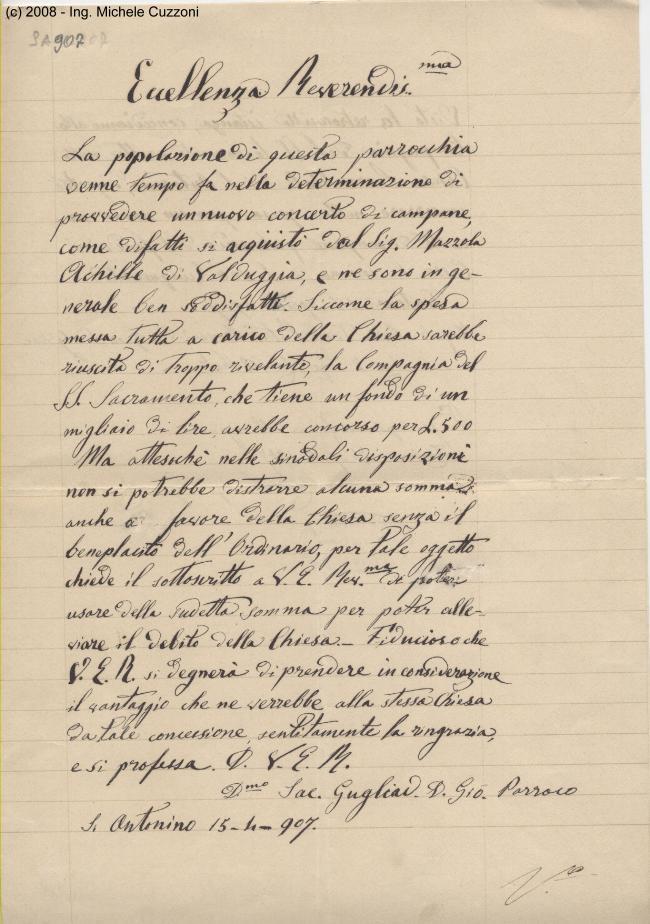 (c) 2008 - Ing. Michele Cuzzoni
SA907
Eccellenza Reverendis.ma
La popolazione di questa parrocchia
venne tempo fa nella determinazione di
provvedere un nuovo concerto di campane,
come difatti si acquistò dal Sig. Mazzola
Achille di Valduggia, e ne sono in ge-
nerale ben soddisfatti. Siccome la spesa
messa tutta a carico della Chiesa sarebbe
riuscita di troppo rivelante, la Compagnia del
SS. Sacramento, che tiene un fondo di un
migliaio di lire, avrebbe concorso per L. 500
Ma attesochè nelle sinodali disposizioni
non si potrebbe distrarre alcuna somma
anche a favore della Chiesa senza il
beneplacito dell'Ordinario, per tale oggetto
chiede il sottoscritto a V. E. Rev.ma di poter
usare della sudetta somma per poter alle-
viare il debito della Chiesa. - Fiducioso che
V. E. R. si degnerà di prendere in considerazione
il vantaggio che ne verrebbe alla stessa Chiesa
da tale concessione, sentitamente la ringrazia,
e si professa. D. V. E. R.
D.mo Sac. Gugliad. D. Gio. Parroco
S. Antonino 15-4-907.